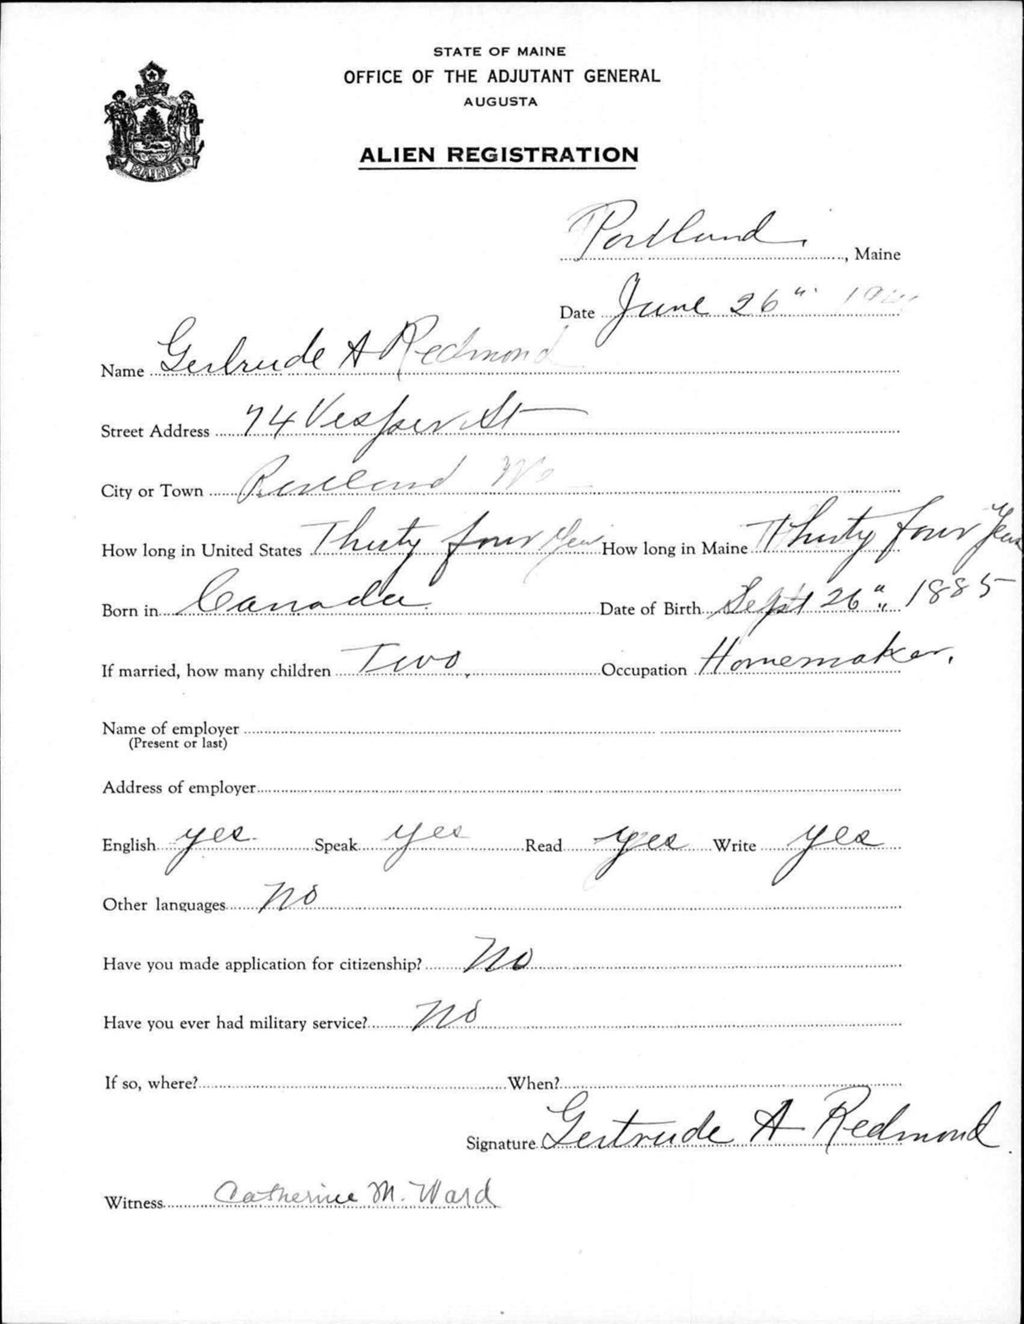 STATE OF MAINE
OFFICE OF THE ADJUTANT GENERAL
AUGUSTA
ALIEN REGISTRATION
MAINE
Portland, Maine
Date June 26"
Name Gertrude A Redmond
Street Address 74 Vesper St
City or Town Portland Me
How long in United States Thirty four Year How long in Maine Thirty four Years
Born in Canada Date of Birth Sept 26", 1885
If married, how many children Two, Occupation Homemaker.
Name of employer
(Present or last)
Address of employer
English yes Speak yes Read yes Write yes
Other languages No
Have you made application for citizenship? No
Have you ever had military service? No
If so, where? When?
Signature Gertrude A Redmond
Witness Catherine M. Ward